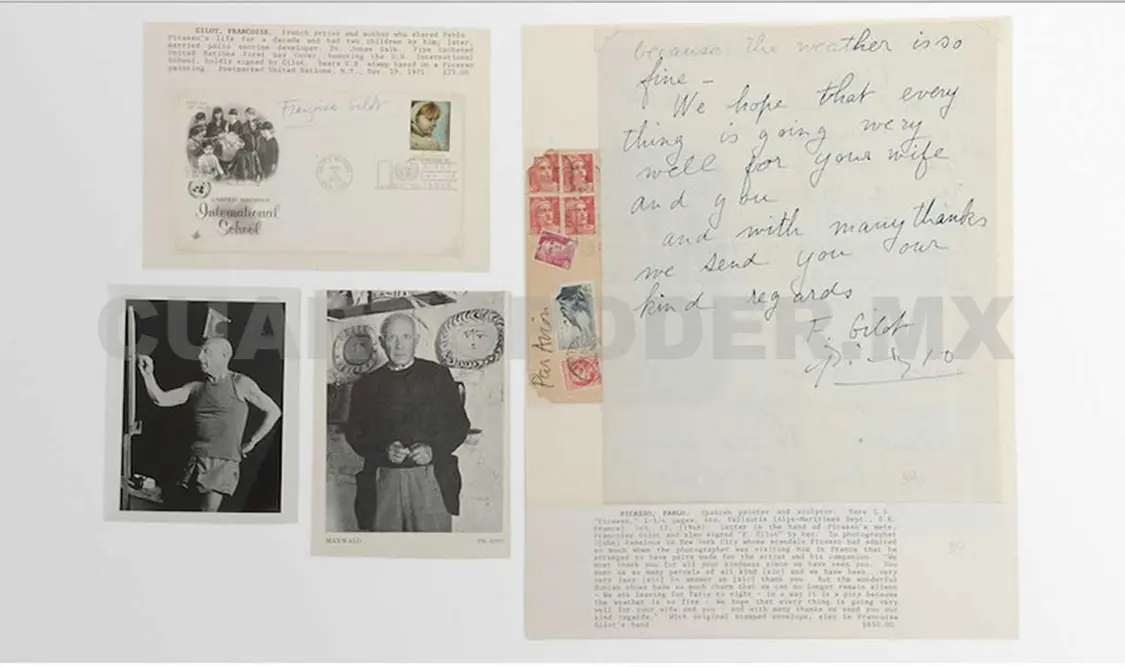 GILOT, FRANCOISE. French artist and mother who shared Pablo
Picasso's life for a decade and had two children by him; later,
married polio vaccine developer, Dr. Jonas Salk. Fine Cacheted
United Nations First Day Cover, honoring the U.N. International
School, boldly signed by Gilot. Bears U.N. stamp based on a Picasso
painting. Postmarked United Nations, N.Y., Nov. 19, 1971 $75.00
Françoise Gilot
UNITED NATIONS
International
School
MAYWALD
Par Avion
because the weather is so
fine -
We hope that every
thing is going wery
well for your wife
and you
and with many thanks
we send you our
kind regards
F. Gilot
Picasso
CUARTOPODER.MX
PICASSO, PABLO. Spanish painter and sculptor. Rare L.S.
"Picasso," 1-1/4 pages, 4to, Vallauris [Alpes-Maritimes Dept., S.E.
France] Oct. 17, (1948). Letter in the hand of Picasso's mate,
Francoise Gilot and also signed "F. Gilot" by her. To photographer
in New York City whose sandals Picasso had admired
so much when the photographer was visiting him in France that he
arranged to have pairs made for the artist and his companion. "We
must thank you for all your kindness since we have seen you. You
sent us so many parcels of all kind [sic] and we have been...very
very lazy [sic] to answer an [sic] thank you. But the wonderful
shoes have so much charm that we can no longer remain silent
- We are leaving for Paris to night - in a way it is a pity because
the weather is so fine - We hope that every thing is going very
well for your wife and you - and with many thanks we send you our
kind regards." With original stamped envelope, also in Francoise
Gilot's hand $850.00